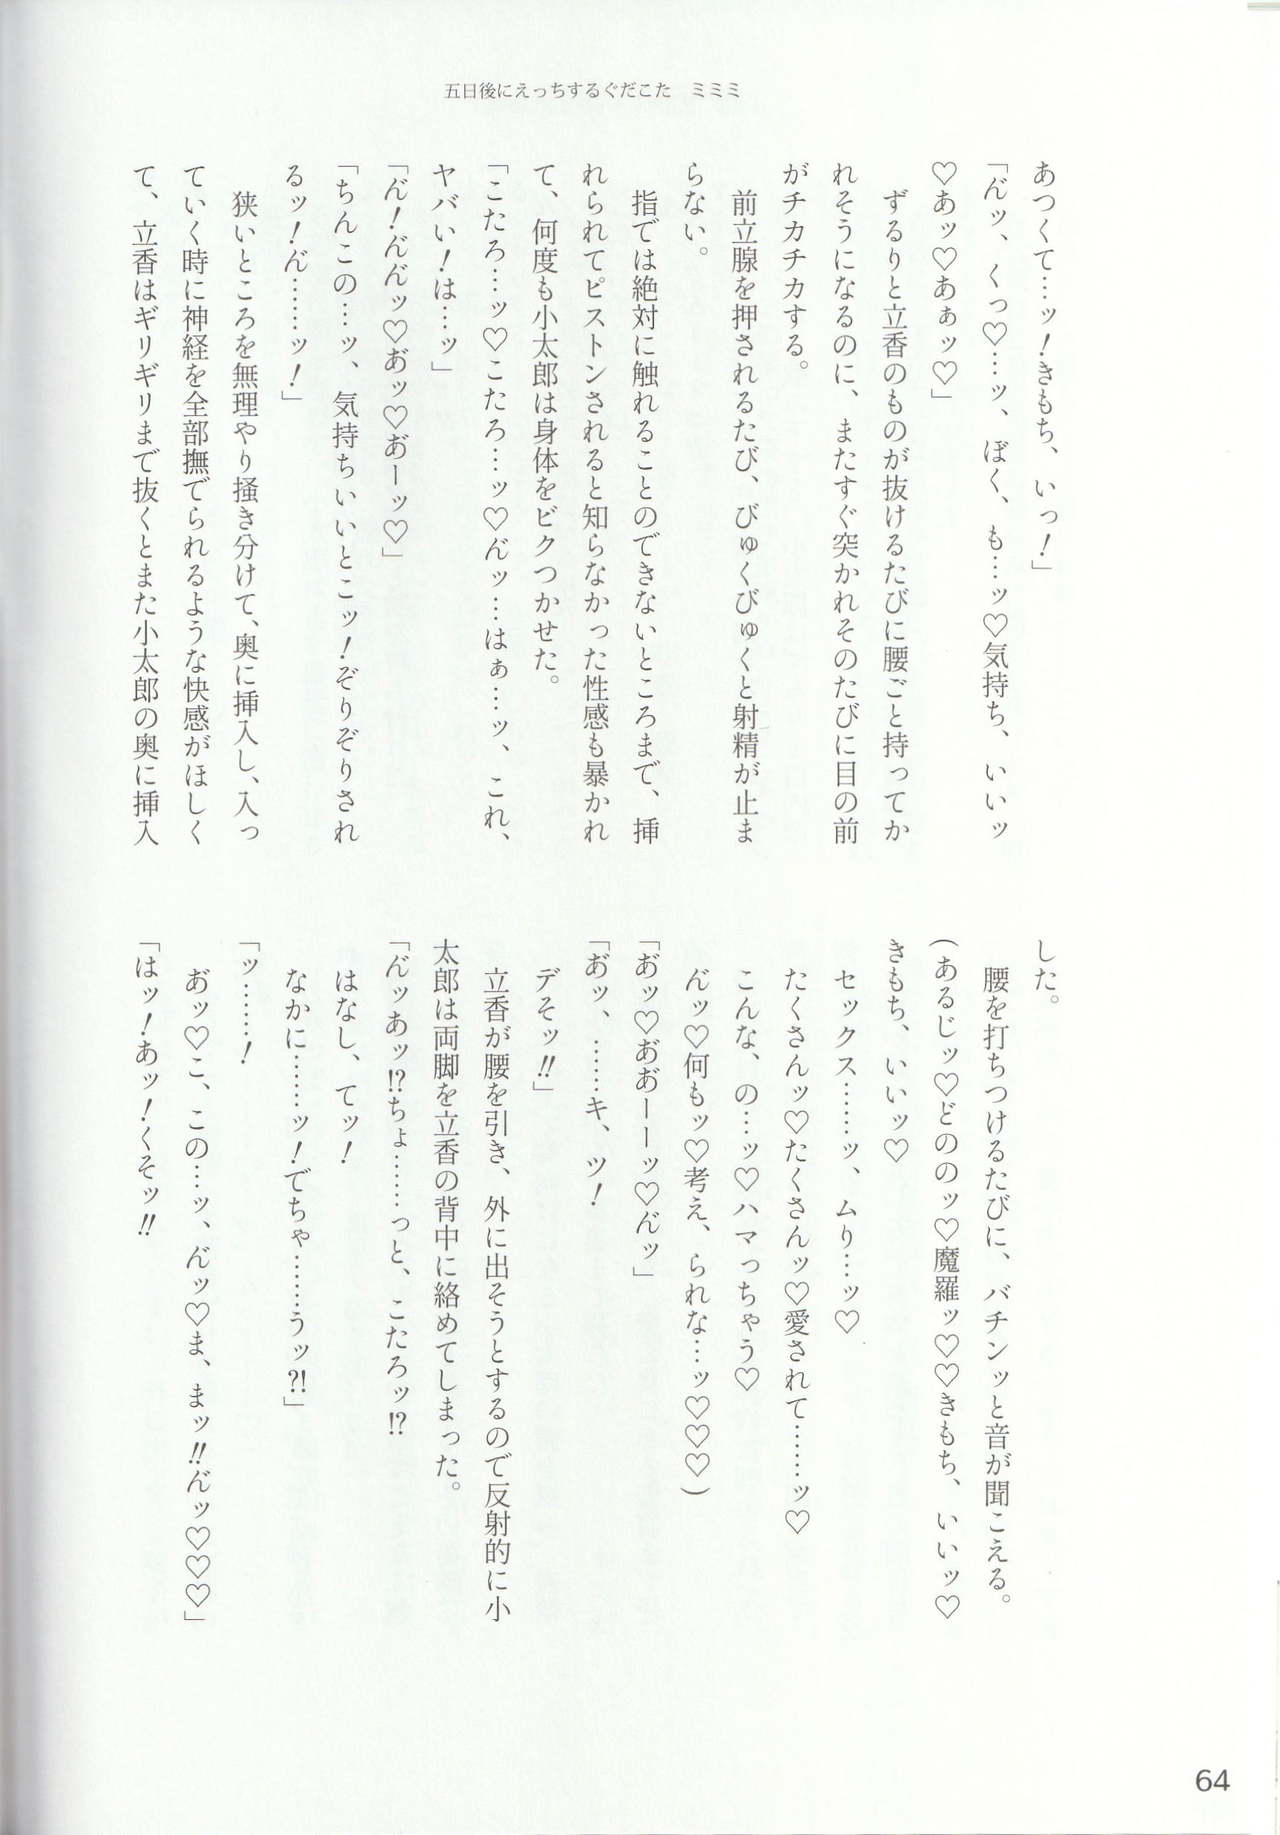 五日後にえっちするぐだこた　ミミミ
あつくて…ッ！きもち、いっ！」
「ん゙ッ、くっ♡…ッ、ぼく、も…ッ♡気持ち、いいッ
♡あッ♡あぁッ♡」
　ずるりと立香のものが抜けるたびに腰ごと持ってか
れそうになるのに、またすぐ突かれそのたびに目の前
がチカチカする。
　前立腺を押されるたび、びゅくびゅくと射精が止ま
らない。
　指では絶対に触れることのできないところまで、挿
れられてピストンされると知らなかった性感も暴かれ
て、何度も小太郎は身体をビクつかせた。
「こたろ…ッ♡こたろ…ッ♡ん゙ッ…はぁ…ッ、これ、
ヤバい！は…ッ」
「ん゙！ん゙ん゙ッ♡あ゙ッ♡あ゙ーッ♡」
「ちんこの…ッ、気持ちいいとこッ！ぞりぞりされ
るッ！ん゙……ッ！」
　狭いところを無理やり掻き分けて、奥に挿入し、入っ
ていく時に神経を全部撫でられるような快感がほしく
て、立香はギリギリまで抜くとまた小太郎の奥に挿入
した。
　腰を打ちつけるたびに、バチンッと音が聞こえる。
（あるじッ♡どののッ♡魔羅ッ♡♡きもち、いいッ♡
きもち、いいッ♡
　セックス……ッ、ムり…ッ♡
　たくさんッ♡たくさんッ♡愛されて……ッ♡
　こんな、の…ッ♡ハマっちゃう♡
　ん゙ッ♡何もッ♡考え、られな…ッ♡♡♡）
「あ゙ッ♡あ゙あ゙ーーッ♡ん゙ッ」
「あ゙ッ、……キ、ツ！
　デそッ!!」
　立香が腰を引き、外に出そうとするので反射的に小
太郎は両脚を立香の背中に絡めてしまった。
「ん゙ッあッ!?ちょ……っと、こたろッ!?
　はなし、てッ！
　なかに……ッ！でちゃ……うッ?!」
「ッ……！
　あ゙ッ♡こ、この…ッ、ん゙ッ♡ま、まッ!!ん゙ッ♡♡♡」
「はッ！あッ！くそッ!!
64